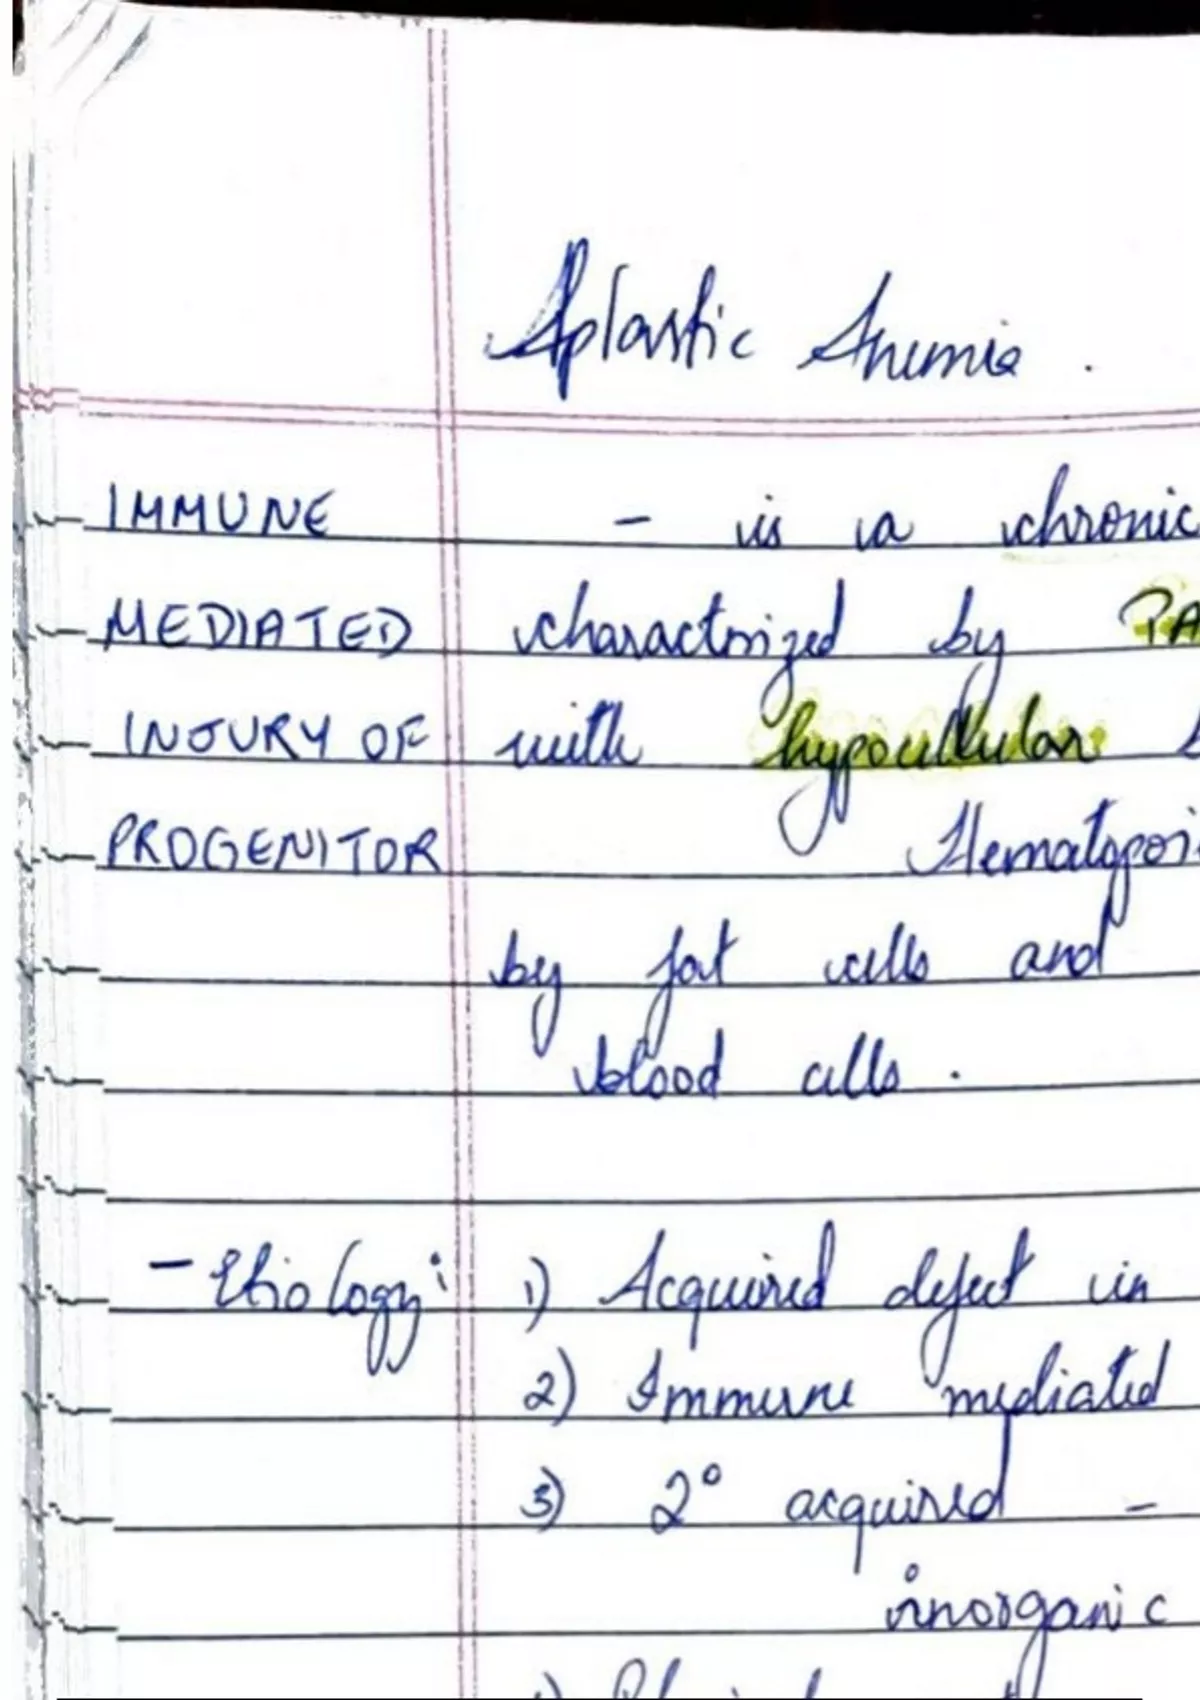 Aplastic Anemia.
IMMUNE - is a chronic
MEDIATED characterized by PA
INJURY OF with hypocellular
PROGENITOR Hematopoi
by fat cells and
blood cells.
- Etiology: 1) Acquired defect in
2) Immune mediated
3) 2° acquired -
inorganic